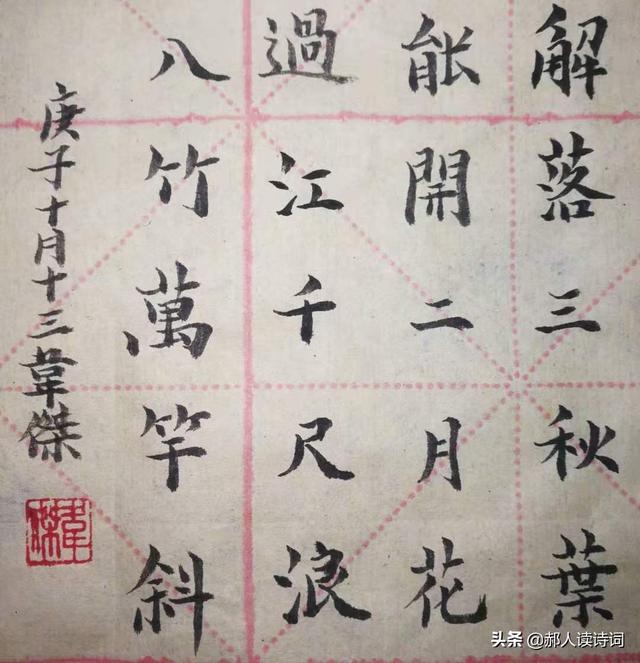 解落三秋葉
能開二月花
過江千尺浪
八竹萬竿斜
庚子十月十三韋傑
韋傑
头条 @郝人读诗词